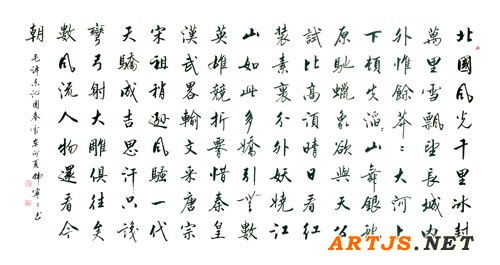 北國風光千里冰封
萬里雪飄望長城內
外惟餘莽々大河上
下頓失滔々山舞銀蛇
原馳蠟象欲與天公
試比高須晴日看紅
裝素裹分外妖嬈江
山如此多嬌引無數
英雄競折腰惜秦皇
漢武畧輸文采唐宗
宋祖稍遜風騷一代
天驕成吉思汗只識
彎弓射大雕俱往矣
數風流人物還看今
朝
毛澤東沁園春雪
ARTJS.NET